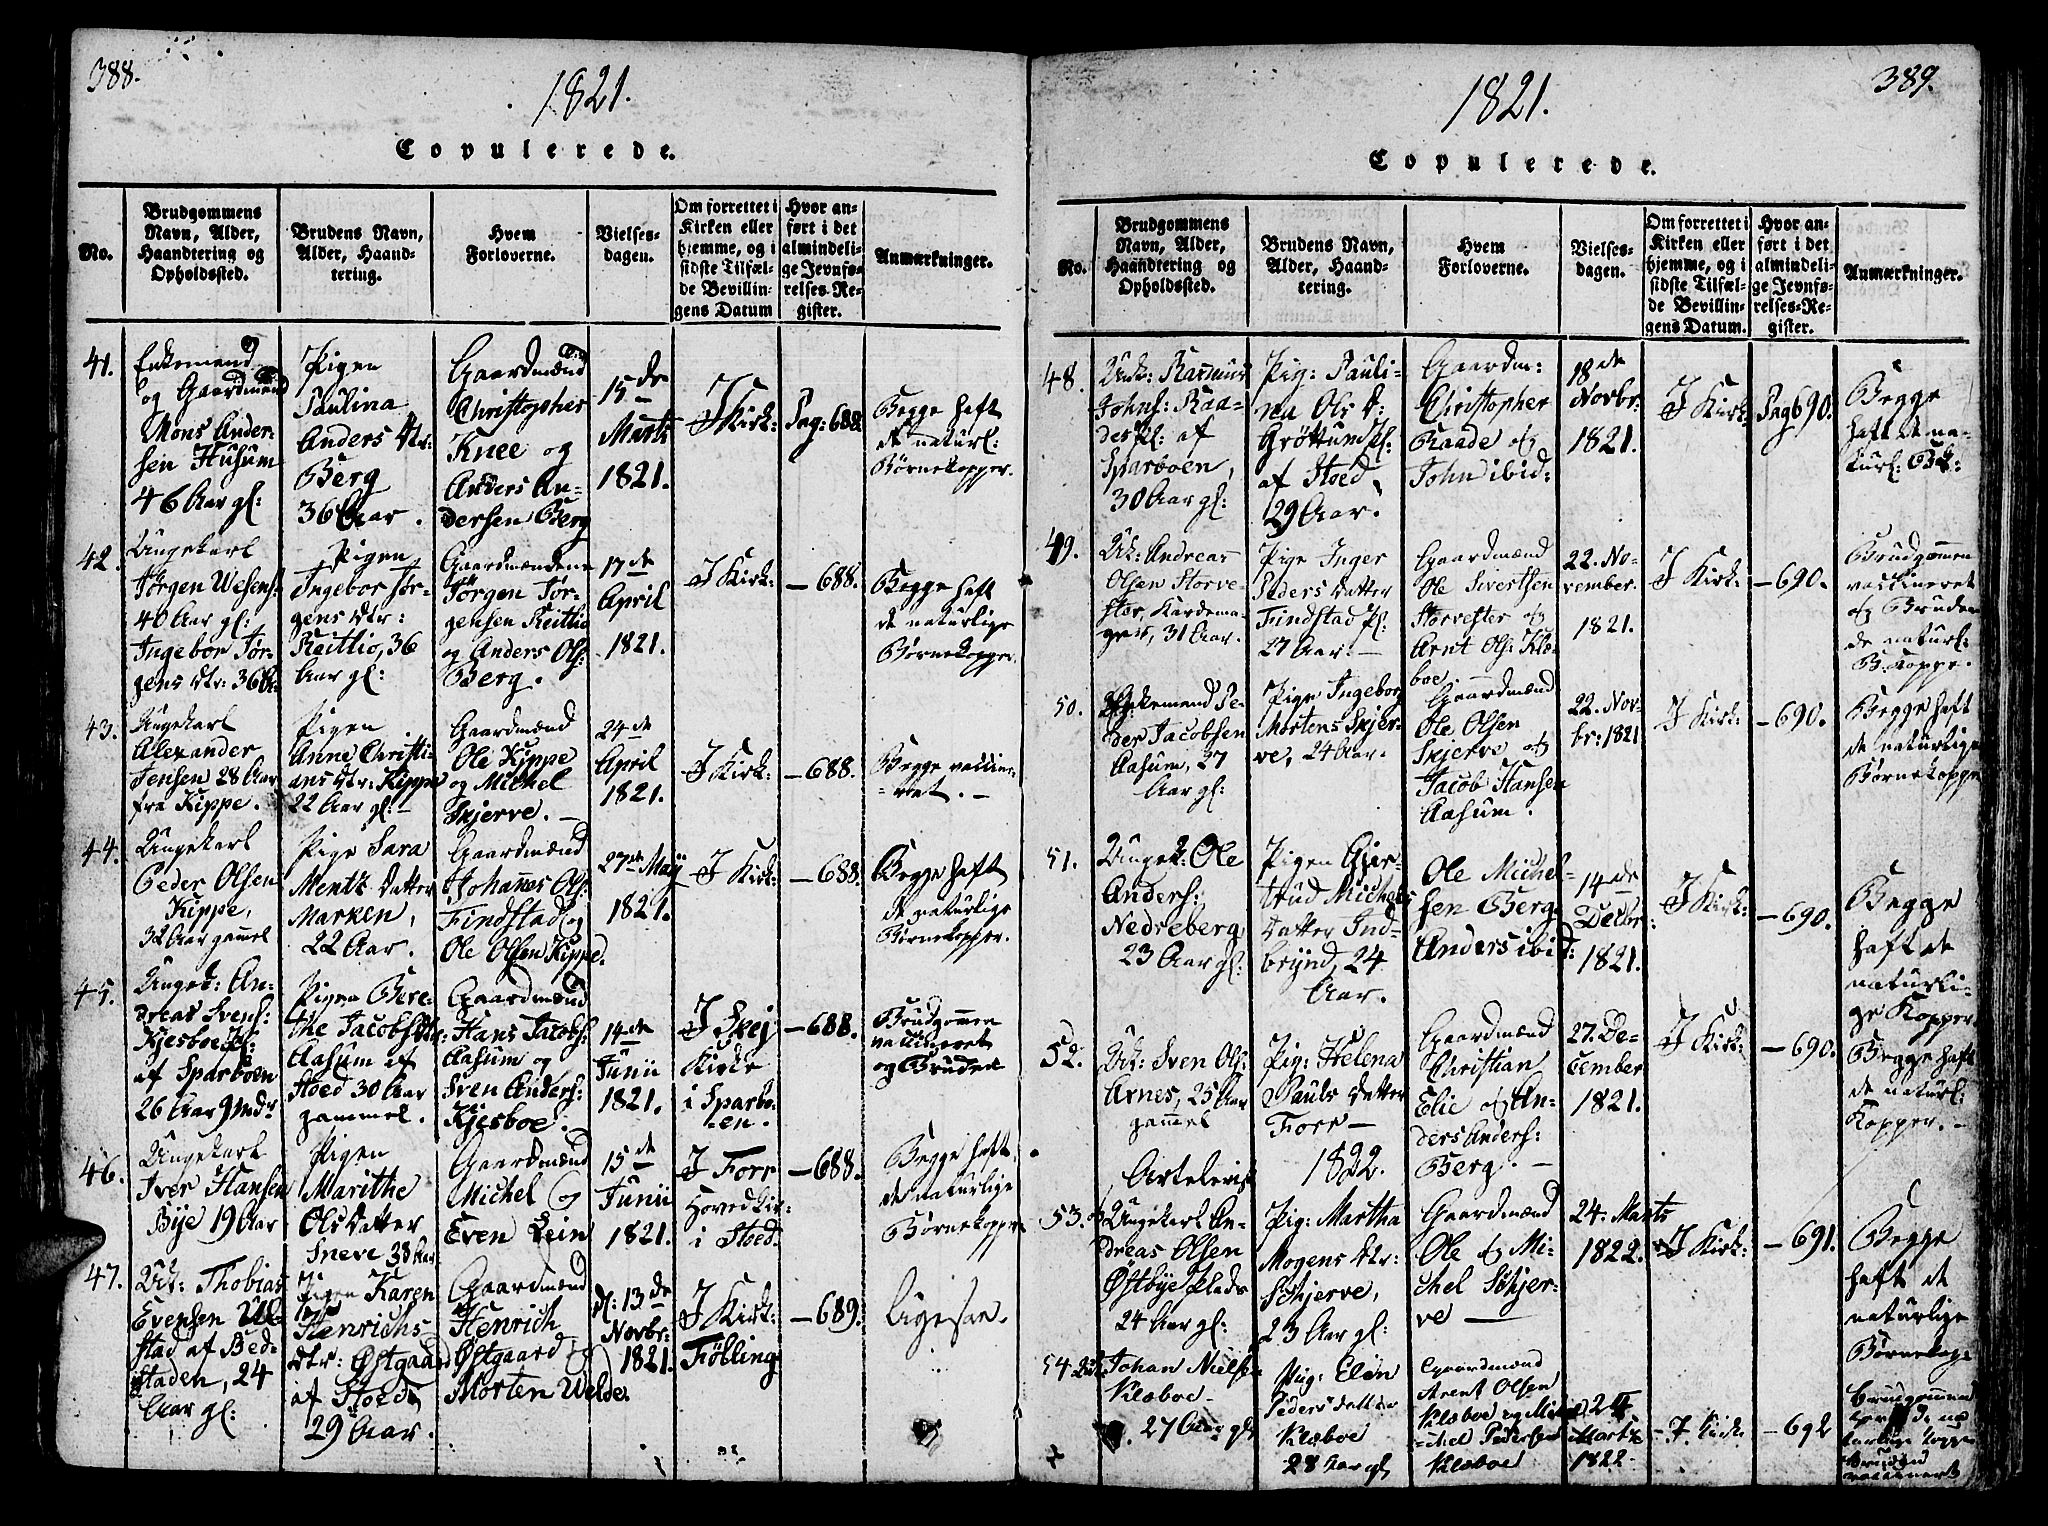 388.
1821.
Copulerede.
No.
Brudgommens
Navn, Alder,
Haandtering og
Opholdssted.
Brudens Navn,
Alder, Haand-
tering.
Hvem
Forloverne.
Vielses-
dagen.
Om forrettet i
Kirken eller
hjemme, og i
sidste Tilfæl-
de Bevillin-
gens Datum
Hvor an-
ført i det
almindeli-
ge Jevnfø-
relses-Re-
gister.
Anmærkninger.
41.
Enkemand
og Gaardmand
Mons Ander-
sen Husum
46 Aar gl:
Pigen
Paulina
Anders Dtr:
Berg
36 Aar.
Gaardmænd
Christopher
Knee og
Anders An-
dersen Berg
15de
Marts
1821.
I Kirk:
Pag: 688.
Begge haft
de naturl:
Børnekopper.
42.
Ungekarl
Jørgen Wesens:
40 Aar gl:
Ingebor Jør-
gens Dtr: 36 A:
Pigen
Ingebor Jør-
gens Dtr:
Reitlio, 36
Aar gl:
Gaardmændene
Jørgen Jør-
gensen Reitlio
og Anders Ols:
Berg.
17de
April
1821.
I Kirk:
— 688.
Begge haft
de naturlige
Børnekopper.
43.
Ungekarl
Alexander
Jensen 28 Aar
fra Kippe.
Pigen
Anne Christi-
ans Dtr: Kippe
22 Aar gl:
Gaardmænd
Ole Kippe
og Michel
Skjerve.
24de
April
1821.
I Kirk:
— 688.
Begge vaccine-
ret.
44.
Ungekarl
Peder Olsen
Kippe,
32 Aar gammel
Pige Sara
Mentz Datter
Marken,
22 Aar.
Gaardmænd
Johannes Ols:
Findstad og
Ole Olsen Kippe.
27de Maij
1821.
I Kirk:
— 688.
Begge haft
de naturlige
Børnekopper.
45.
Ungek: An-
dreas Svens:
Kjesboe Pl:
af Sparboen
26 Aar 9 Mdr
Pigen Bere-
the Jacobs Dtr:
Aasum af
Stoed 30 Aar
gammel.
Gaardmænd
Hans Jacobs:
Aasum og
Sven Anders:
Kjesboe.
14de
Junii
1821.
I Skej
Kirke
i Sparbo-
en.
— 688.
Brudgommen
vaccineret
og Bruden
46.
Ungekarl
Iver Hansen
Bye 19 Aar
Pigen
Marithe
Ols Datter
Sneve 38 Aar
Gaardmænd
Michel og
Even Lein
15de
Junii
1821.
I Forr
Hovedkir-
i Stoed.
— 688.
Begge haft
de naturlige
Børnekopper
47.
Uk: Thobias
Evensen Ul-
stad af Bed-
staden, 24
Aar gl:
Pigen Karen
Henrichs
Dtr: Østgaard
af Stoed
29 Aar.
Gaardmænd
Henrich
Østgaard og
Morten Welde.
d: 13de
Novbr:
1821.
I Kirk:
Følling
— 689.
ligesaa.
389.
1821.
Copulerede.
No.
Brudgommens
Navn, Alder,
Haandtering og
Opholdssted.
Brudens Navn,
Alder, Haand-
tering.
Hvem
Forloverne.
Vielses-
dagen.
Om forrettet i
Kirken eller
hjemme, og i
sidste Tilfæl-
de Bevillin-
gens Datum.
Hvor an-
ført i det
almindeli-
ge Jevnfø-
relses-Re-
gister.
Anmærkninger.
48.
Unk: Rasmus
Johns: Raa-
der Pl: af
Sparboen,
30 Aar gl:
Pig: Pauli-
na Ols D:
Grøttum Pl:
af Stoed
29 Aar.
Gaardm:
Christopher
Raade og
John ibid:
18de
Novbr:
1821.
I Kirk:
Pag 690.
Begge
haft de na-
turl: BK:
49.
Uk: Andreas
Olsen Storve-
ster, Kardema-
ger, 31 Aar.
Pige Inger
Peders Datter
Findstad Pl:
27 Aar.
Gaardmænd
Ole Sivertsen
Storvester og
Arnt Ols: Klæ-
boe.
22. No-
vember.
1821.
I Kirk:
— 690.
Brudgommen
vaccineret
og Bruden
de naturl:
B. Koppe.
50.
Enkemand Pe-
der Jacobsen
Aasum, 37
Aar gl:
Pige Ingebor
Mortens Skjer-
ve, 24 Aar.
Gaardmænd
Ole Olsen
Skjerve og
Jacob Hansen
Aasum.
22. Nov-
br: 1821
I Kirk:
— 690.
Begge haft
de naturlige
Børnekopper
51.
Ungek: Ole
Anders:
Nedreberg
23 Aar gl:
Pigen Gjer-
trud Michels
Datter Ind-
brynd, 24
Aar.
Ole Michel-
sen Berg
Anders ibid:
14de
Decbr:
1821.
I Kirk:
— 690.
Begge
haft de
naturli-
ge Kopper.
52.
Uk: Sven Ols:
Arnes, 25 Aar
gammel
Pig: Helena
Pauls Datter
Forr —
Gaardmænd
Christian
Elie og An-
ders Anders:
Berg.
27. De-
cember
1821.
I Kirk:
— 690.
Begge haft
de naturl:
Kopper.
1822.
53.
Ungekarl An-
dreas Olsen
Østbye Plads
24 Aar gl:
Pig: Martha
Mogens Dtr:
Schjerve,
23 Aar gl:
Gaardmænd
Ole og Mi-
chel Schjer-
ve
24. Marts
1822.
I Kirk:
— 691.
Begge
haft de
naturlige
Børnekoppe
54
Johan Niels:
Klæboe
27 Aar gl:
Pig: Elen
Peders datter
Klæboe
28 Aar gl
Gaardmænd
Arent Olsen
Klæboe og Mi-
chel Pedersen
Klæboe
24
Marts
1822
I Kirk
— 692
Brudgommen
de na-
turlige Koppe
Bruden
vaccineret